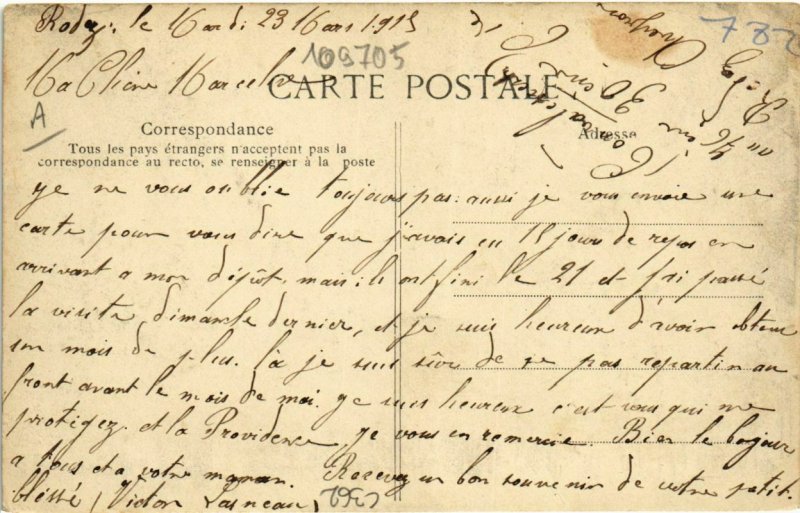 Rodez. le Mardi 23 Mars 1915
109705
788
Ma Chère Marceline
CARTE POSTALE
A
Correspondance
Adresse
Tous les pays étrangers n'acceptent pas la
correspondance au recto, se renseigner à la poste
ye ne vous oublie toujours pas: aussi je vous envoie une
carte pour vous dire que j'avais eu 15 jours de repos en
arrivant a mon dépôt. mais ils ont fini le 21 et j'ai passé
la visite dimanche dernier, et je suis heureux d'avoir obtenu
un mois de plus. là je suis sûr de ne pas repartir au
front avant le mois de mai. ye suis heureux c'est vous qui me
protigez. et la Providence, je vous en remercie. Bien le bonjour
a tous et a votre maman. Recevez un bon souvenir de votre petit
bléssé, Victor
2362